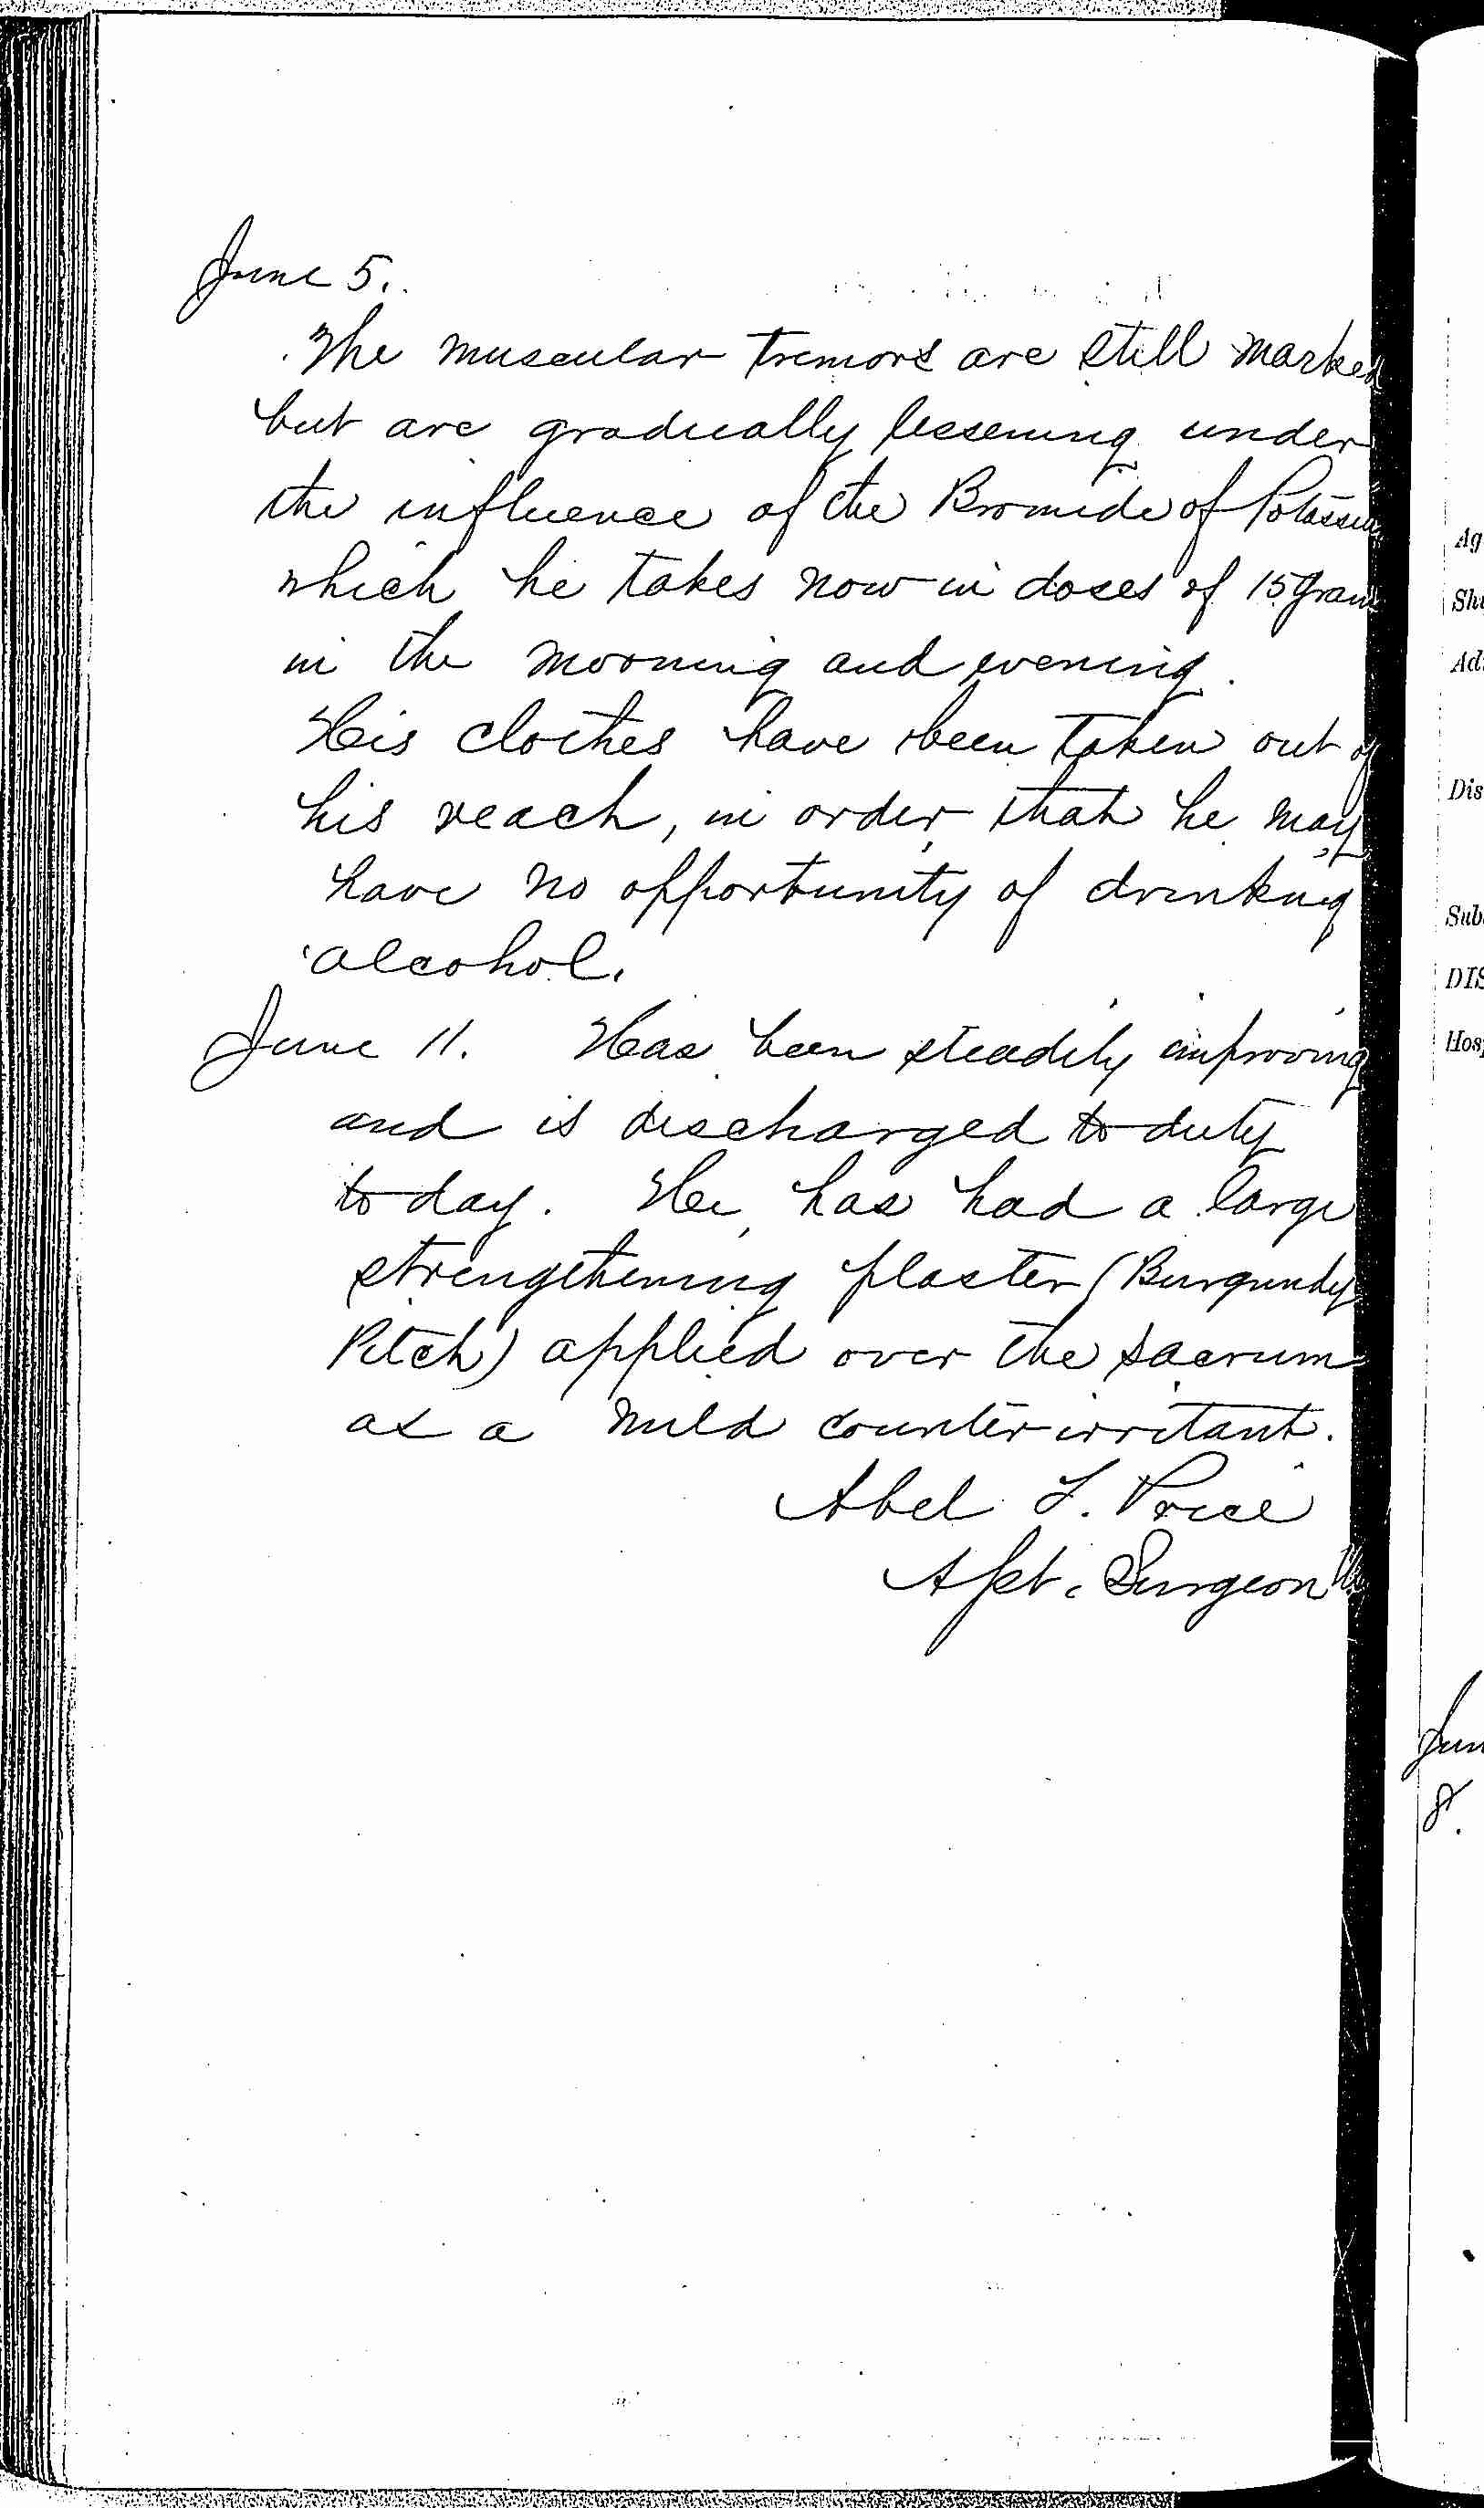 June 5.
The muscular tremors are still marked
but are gradually lessening under
the influence of the Bromide of Potassiu
which he takes now in doses of 15 gram
in the morning and evening.
His clothes have been taken out of
his reach, in order that he may
have no opportunity of drinking
alcohol.
June 11. Has been steadily improving
and is discharged to duty
to day. He has had a large
strengthening plaster (Burgundy
Pitch) applied over the sacrum
as a mild counter irritant.
Abel F. Price
Asst. Surgeon
Ag
Shi
Ad
Dis
Sub
DIS
Hosp
Jun
8.